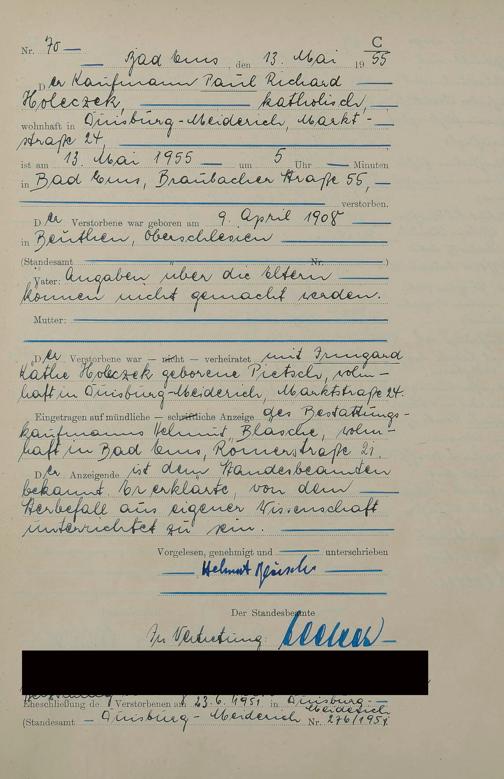 C
Nr. 70
Bad Ems, den 13. Mai 1955
Der Kaufmann Paul Richard
Holeczek, katholisch,
wohnhaft in Duisburg-Meiderich, Markt-
straße 24,
ist am 13. Mai 1955 um 5 Uhr Minuten
in Bad Ems, Braubacher Straße 55,
verstorben.
Der Verstorbene war geboren am 9. April 1908
in Beuthen, Oberschlesien
(Standesamt Nr. )
Vater: Angaben über die Eltern
können nicht gemacht werden.
Mutter:
Der Verstorbene war — nicht — verheiratet mit Irmgard
Käthe Holeczek geborene Pietsch, wohn-
haft in Duisburg-Meiderich, Marktstraße 24.
Eingetragen auf mündliche — schriftliche Anzeige des Bestattungs-
kaufmanns Helmut Blasche, wohn-
haft in Bad Ems, Römerstraße 21.
Der Anzeigende ist dem Standesbeamten
bekannt. Er erklärte, von dem
Sterbefall aus eigener Wissenschaft
unterrichtet zu sein.
Vorgelesen, genehmigt und unterschrieben
Helmut Blasche
Der Standesbeamte
In Vertretung:
Eheschließung de Verstorbenen am 23.6.1951 in Duisburg-
Meiderich
(Standesamt Duisburg-Meiderich Nr. 276/1951